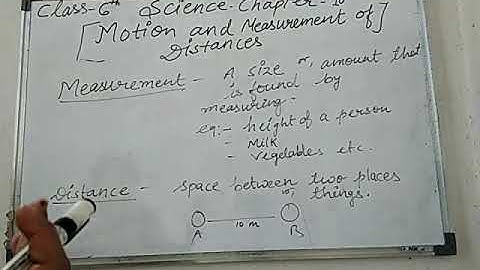 Class-6th Science-Chapter-10
[Motion and Measurement of]
Distances
Measurement - A size or, amount that
is found by
measuring-
eg:- height of a person
- Milk
- vegetables etc.
Distance - space between two places
or, things.
10 m
A B